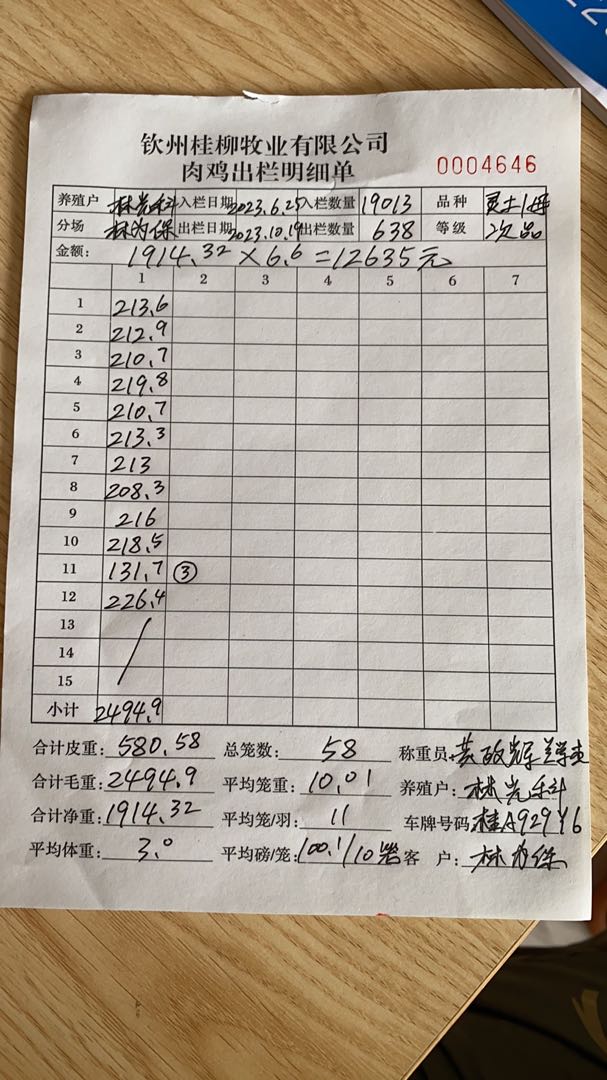 钦州桂柳牧业有限公司
肉鸡出栏明细单
0004646
养殖户 林光科 入栏日期 2023.6.25 入栏数量 19013 品种 灵土1号
分场 林为保 出栏日期 2023.10.19 出栏数量 638 等级 次品
金额: 1914.32×6.6=12635元
1 2 3 4 5 6 7
1 213.6
2 212.9
3 210.7
4 219.8
5 210.7
6 213.3
7 213
8 208.3
9 216
10 218.5
11 131.7 ③
12 226.4
13
14
15
小计 2494.9
合计皮重: 580.58 总笼数: 58 称重员:
合计毛重: 2494.9 平均笼重: 10.01 养殖户: 林光科
合计净重: 1914.32 平均笼/羽: 11 车牌号码: 桂A929Y6
平均体重: 3.0 平均磅/笼: 100.1/10 客 户: 林为保